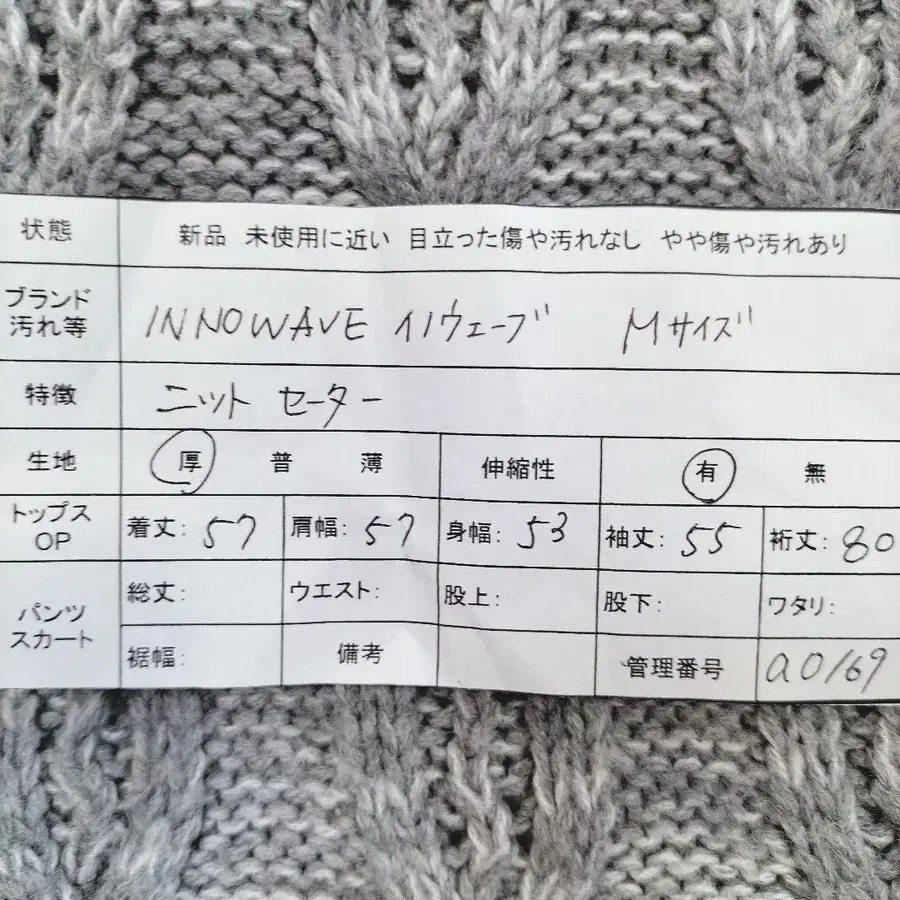 状態 新品 未使用に近い 目立った傷や汚れなし やや傷や汚れあり
ブランド
汚れ等 INNOWAVE イノウェーブ Mサイズ
特徴 ニット セーター
生地 厚 普 薄 伸縮性 有 無
トップス
OP 着丈: 57 肩幅: 57 身幅: 53 袖丈: 55 裄丈: 80
パンツ
スカート 総丈: ウエスト: 股上: 股下: ワタリ:
裾幅: 備考 管理番号 a0169